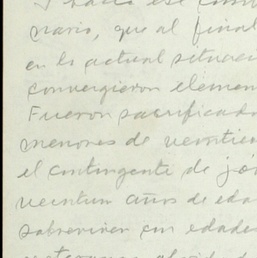 hacia ese
nario, que al final
en la actual situac
convergieron elemen
Fueron sacrificado
menores de veintic
el contingente de jó
veintun años de eda
sobreviven con edade